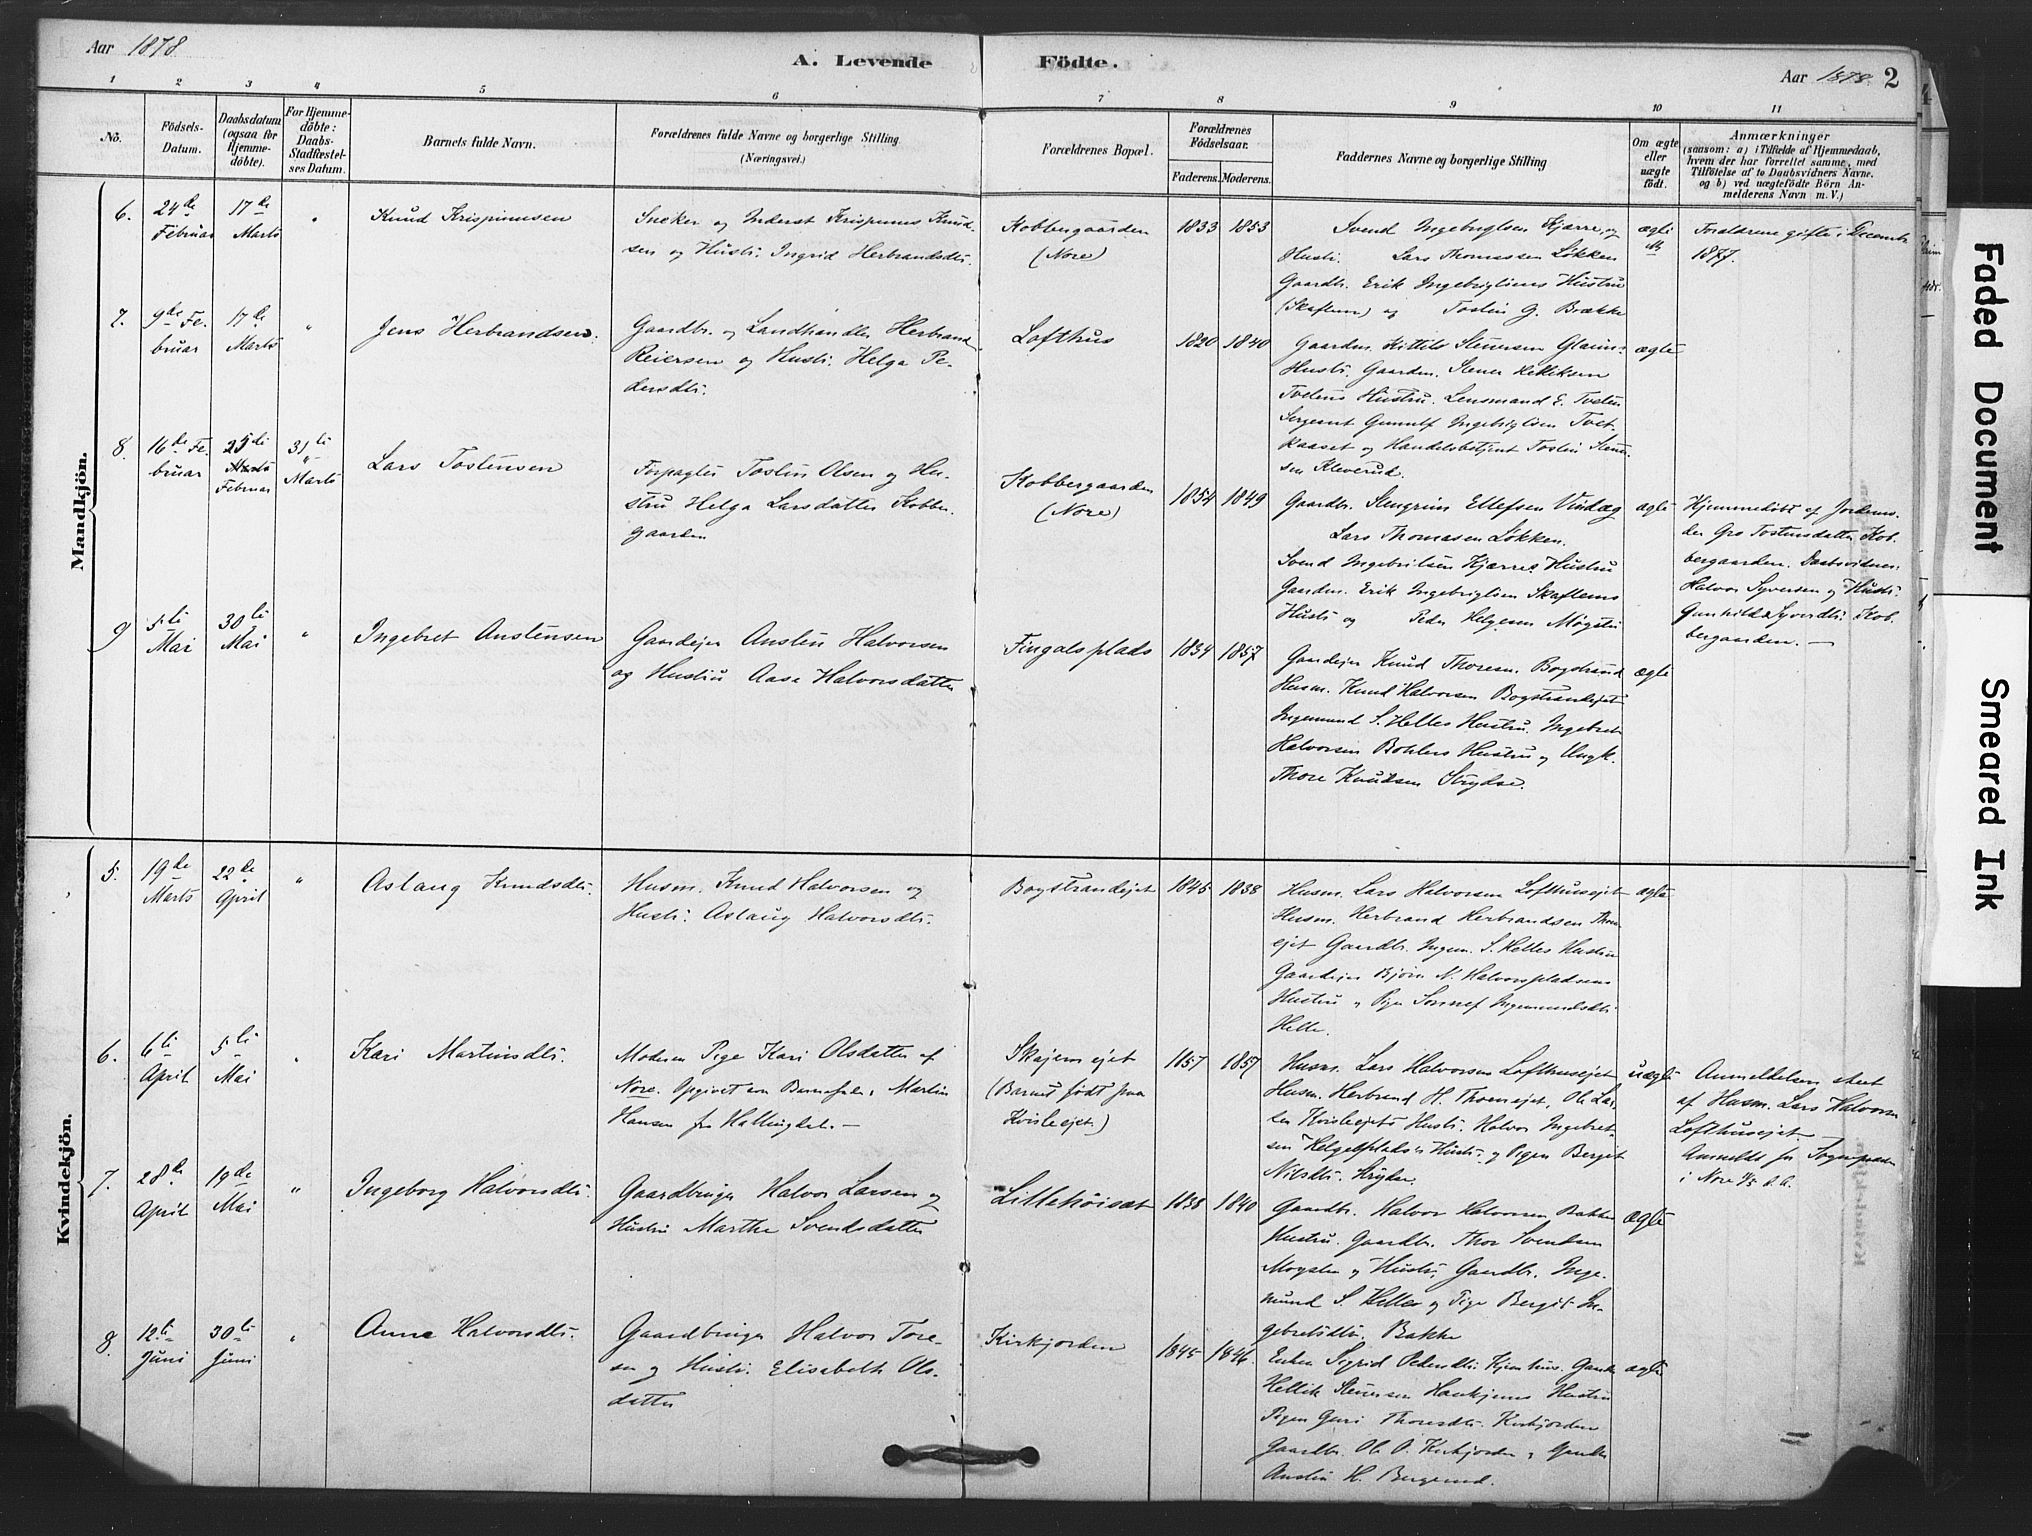 Aar 1878
A. Levende Födte.
Aar 1878. 2
1 2 3 4 5 6 7 8 9 10 11
No.
Födsels-
Datum.
Daabsdatum
(ogsaa for
Hjemme-
döbte).
For Hjemme-
döbte:
Daabs-
Stadfæstel-
ses Datum.
Barnets fulde Navn.
Forældrenes fulde Navne og borgerlige Stilling
(Næringsvei.)
Forældrenes Bopæl.
Forældrenes
Födselsaar.
Faderens. Moderens.
Faddernes Navne og borgerlige Stilling
Om ægte
eller
uægte
födt.
Anmærkninger
(saasom: a) i Tilfælde af Hjemmedaab,
hvem der har forrettet samme, med
Tilföielse af to Daabsvidners Navne.
og b) ved uægtefödte Börn An-
melderens Navn m. V.)
Mandkjön.
6.
24de
Februar
17de
Marts
Knud Krispinusen
Sneker og Inderst Krispinus Knud-
sen og Hustr. Ingrid Herbrandsdtr.
Kobbergaarden
(Nore)
1833 1853
Svend Ingebrigtsen Kjærre, og
Hustr. Lars Thomassen Løkken
Gaardbr. Erik Ingebrigtsens Hustru
(Skaftem) og Tosten G. Brække
ægte
Forældrene gifte i Decembr
1877.
7.
9de Fe-
bruar
17de
Marts
Jens Herbrandsen.
Gaardbr. og Landhandler Herbrand
Reiersen og Hustr. Helga Pe-
dersdtr.
Lofthus
1820 1840
Gaardm. Kittil Stenersen
Hustr. Gaardm. Stener Helliksen
Tvetens Hustru. Lensmand E. Tveten
Sergeant Gunulf Ingebrigtsen Tvet-
kaaset og Handelsbetjent Tosten Stener-
sen Kleverud.
ægte
8.
16de Fe-
bruar
25de
Marts
Februar
31te
Marts
Lars Tostensen
Forpagter Tosten Olsen og Hu-
stru Helga Larsdatter Kobber-
gaarden
Kobbergaarden
(Nore)
1854 1849
Gaardbr. Stengrim Ellefsen Vindeg
Lars Thomasen Løkken.
Svend Ingebritsen Kjærres Hustru
Gaardm. Erik Ingebrigtsen Skaftems
Hustr og Peder Helgesen Møgster
ægte
Hjemmedöbt af Jordemo-
der Gro Tostensdatter Kob-
bergaarden. Daabsvidner:
Halvor Syversen og Hustr.
Gunhild Syverdtr. Kob-
bergaarden. —
9
5te
Mai
30te
Mai
Ingebret Anstensen
Gaardejer Ansten Halvorsen
og Hustru Aase Halvorsdatter
Fingalsplads
1834 1857
Gaardejer Knud Thoresen Bogstrand
Husm. Knud Halvorsen Bogstrandejet
Ingemund S. Helles Hustru. Ingebret
Halvorsen Bohlers Hustru og Ungk.
Thore Knudsen Strydse.
ægte
Kvindekjön.
5.
19de
Marts
22de
April
Aslaug Knudsdtr.
Husm. Knud Halvorsen og
Hustr. Aslaug Halvorsdtr.
Bogstrandejet
1845 1838
Husm. Lars Halvorsen Lofthusejet
Husm. Herbrand Herbrandsen Thoen-
ejet Gaardbr. Ingem. S. Helles Hustru
Gaardejer Bjørn N. Halvorspladsens
Hustru og Pige Ingemundsdtr.
Helle.
ægte
6.
6te
April
5te
Mai
Kari Martinsdtr.
Moderen Pige Kari Olsdatter af
Nore. Opgivet som Barnefader: Martin
Hansen fra Hallingdal. —
Skajemsejet
(Barnet födt paa
Kvisleejet.)
1857 1857
Husm. Lars Halvorsen Lofthusejet
Husm. Herbrand H. Thoenejet, Ole Lar-
sen Kvisleejets Hustr. Halvor Ingebret-
sen Helgesplads's Hustr. og Pigen Berget
Nilsdtr. Stryder.
uægte
Anmeldelsen skeet
af Husm. Lars Halvorsen
Lofthusejet.
Anmeldt for Sognepræsten
i Nore
7.
28de
April
19de
Mai
Ingeborg Halvorsdtr.
Gaardbruger Halvor Larsen og
Hustru Marthe Svendsdatter
Littehöiset
1838 1840
Gaardbr. Halvor Halvorsen Bakke
Hustru. Gaardbr. Thor Svendsen
Mogsten og Hustr. Gaardbr. Inge-
mund S. Helles og Pige Bergit In-
gebretsdtr. Bakke
Ægte
8.
12te
Juni
30te
Juni
Anne Halvorsdtr.
Gaardbruger Halvor Tore-
sen og Hustr. Elisabeth Ols-
datter
Kirkjorden
1845 1846.
Enken Sigrid Pedersdtr. Kjemhus. Gaardbr
Hellik Stenersen Haukjems Hustru
Pigen Guri Thoresdtr. Kirkjorden
Gaardbr. Ole O. Kirkjorden og Gaardbr
Ansten H. Bergerud.
ægte
Faded Document
Smeared Ink